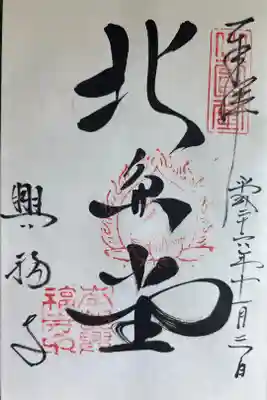 奉拝
平成二十六年十一月二日
北円堂
興福寺